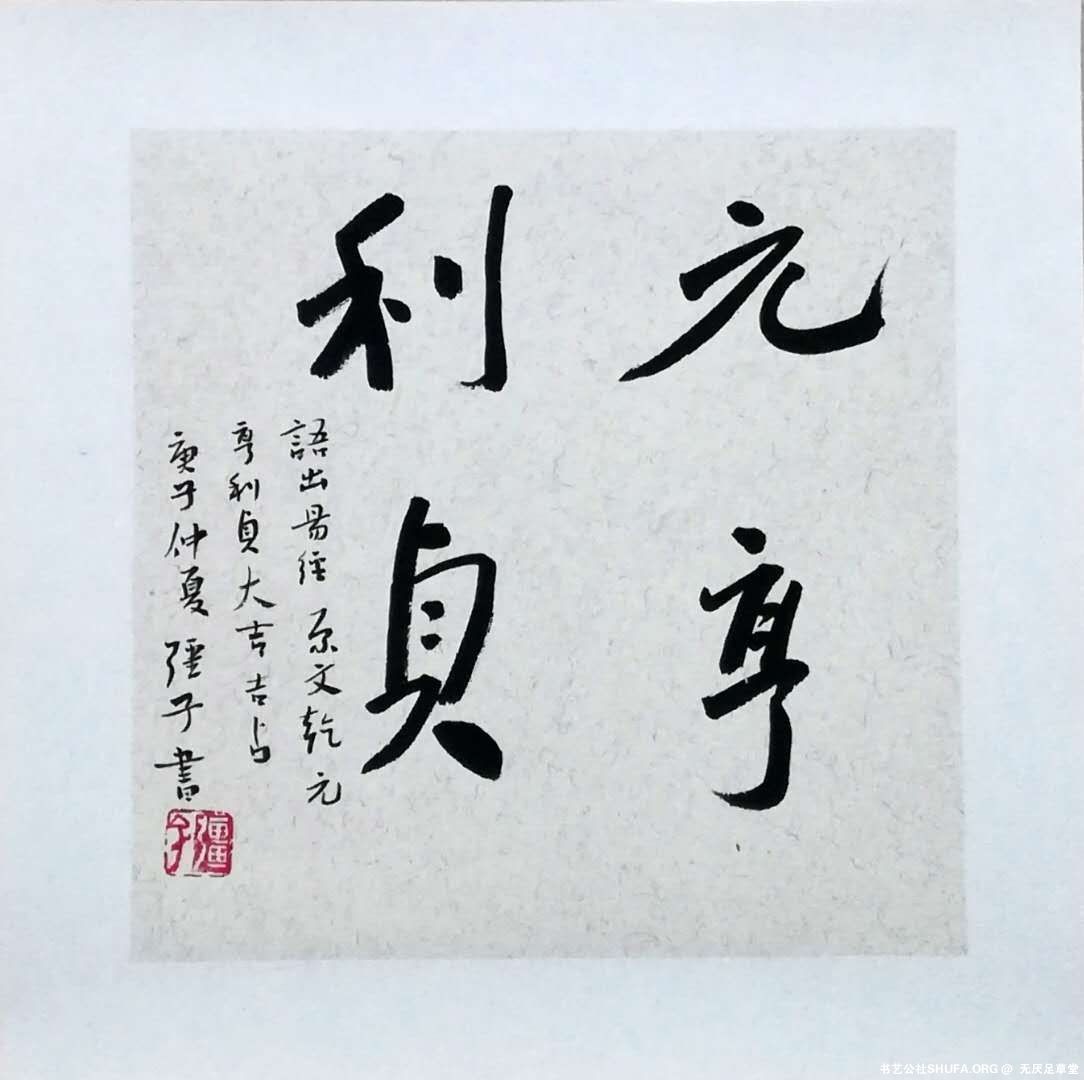 元亨
利貞
語出易經原文乾元
亨利貞大吉吉占
庚子仲夏彊子書
彊子
书艺公社SHUFA.ORG @ 无厌足草堂